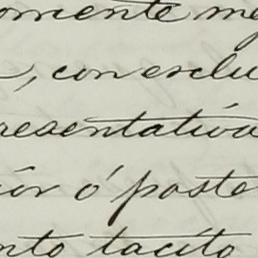 omente me
, con exclu
resentativa
ior ó poste
nto tacito